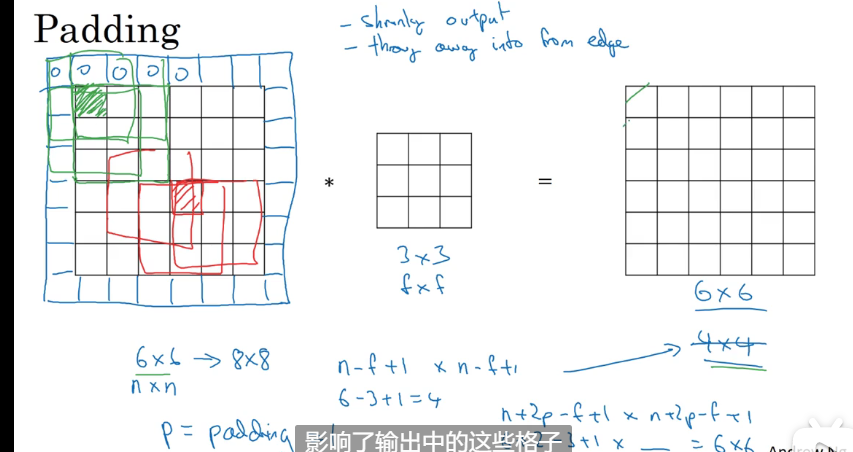 Padding
- shrinky output
- throw away info from edge
0 0 0 0 0
*
=
3 × 3
f × f
6 × 6
4 × 4
6 × 6 → 8 × 8
n × n
n - f + 1 × n - f + 1
6 - 3 + 1 = 4
n + 2p - f + 1 × n + 2p - f + 1
- 3 + 1 × __ = 6 × 6
p = padding
影响了输出中的这些格子
Andrew Ng